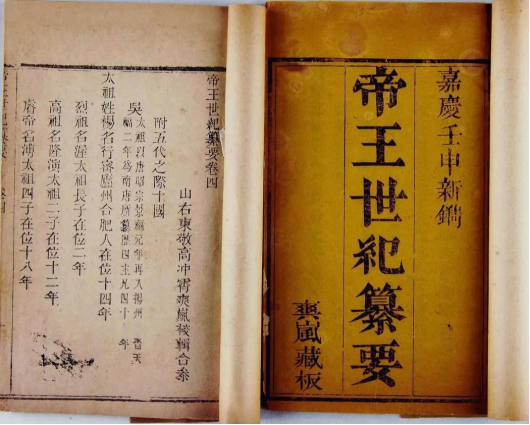 嘉慶壬申新鐫
帝王世紀纂要
爽嵐藏板
帝王世紀纂要卷四
山右東敬高冲霄爽嵐稜輯合叅
附五代之際十國
吳
太祖以唐昭宗景福元年再入揚州
年為南唐所簒歷四主凡四十
太祖姓楊名行密廬州合肥人在位十四年
烈祖名渥太祖長子在位二年
高祖名隆演太祖二子在位十二年
睿帝名溥太祖四子在位十八年